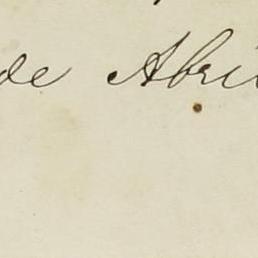 de Abri